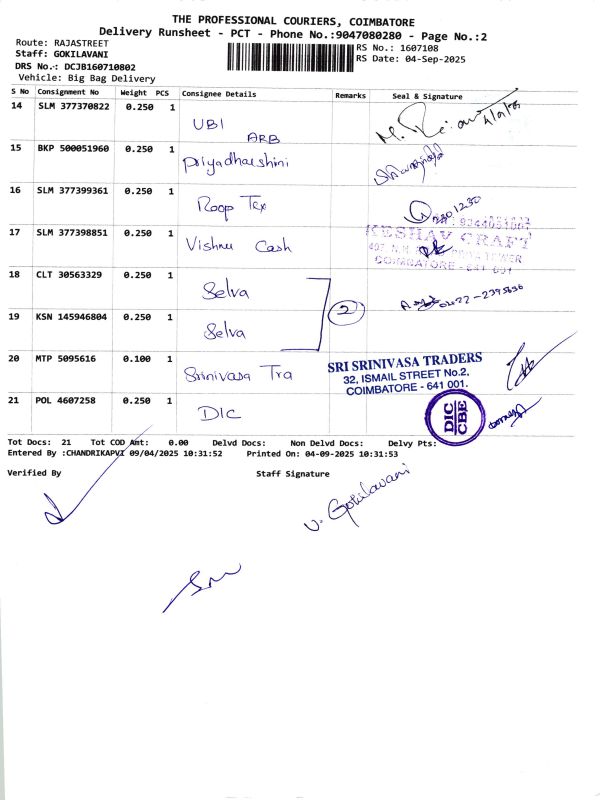 THE PROFESSIONAL COURIERS, COIMBATORE
Delivery Runsheet - PCT - Phone No.:9047080280 - Page No.:2
Route: RAJASTREET
Staff: GOKILAVANI
DRS No.: DCJB160710802
Vehicle: Big Bag Delivery
RS No.: 1607108
RS Date: 04-Sep-2025
S No Consignment No Weight PCS Consignee Details Remarks Seal & Signature
14 SLM 377370822 0.250 1 UBI
ARB
15 BKP 500051960 0.250 1 Priyadharshini
16 SLM 377399361 0.250 1 Roop Tex
17 SLM 377398851 0.250 1 Vishnu Cash
KESHAV CRAFT
COIMBATORE - 641 001
18 CLT 30563329 0.250 1 Selva
2
0422-2395656
19 KSN 145946804 0.250 1 Selva
20 MTP 5095616 0.100 1 Srinivasa Tra
SRI SRINIVASA TRADERS
32, ISMAIL STREET No.2,
COIMBATORE - 641 001.
21 POL 4607258 0.250 1 DIC
DIC
CBE
Tot Docs: 21 Tot COD Amt: 0.00 Delvd Docs: Non Delvd Docs: Delvy Pts:
Entered By :CHANDRIKAPVI 09/04/2025 10:31:52 Printed On: 04-09-2025 10:31:53
Verified By Staff Signature
V. Gokilavani